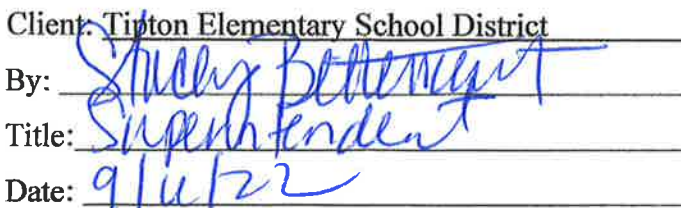 Client: Tipton Elementary School District
By: Stacey Bettencourt
Title: Superintendent
Date: 9/6/22